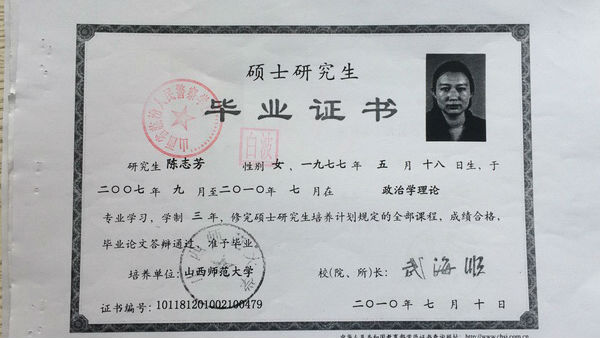 硕士研究生
毕业证书
研究生 陈志芳 性别 女 、一九七七年 五 月 十八 日生，于
二〇〇七年 九 月至二〇一〇年 七 月在 政治学理论
专业学习，学制 三 年，修完硕士研究生培养计划规定的全部课程，成绩合格，
毕业论文答辩通过，准予毕业
培养单位：山西师范大学 校(院、所)长： 武海顺
证书编号：101181201002100479 二〇一〇年 七 月 十 日
http://www.chsi.com.cn